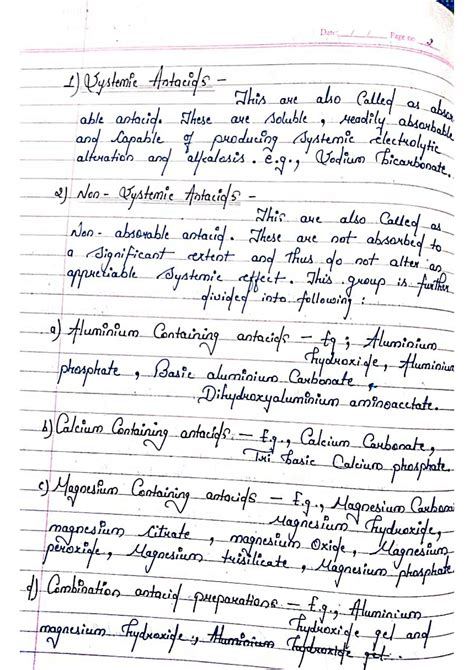 Date: __/__/__ Page no. 2
1) Systemic Antacids -
This are also Called as absor
able antacid. These are soluble, readily absorbable
and Capable of producing Systemic electrolytic
altration and alkalosis. e.g., Sodium bicarbonate.
2) Non-Systemic Antacids -
This are also Called as
Non-absorable antacid. These are not absorbed to
a Significant extent and thus do not alter an
appreciable Systemic effect. This group is further
divided into following:
a) Aluminium Containing antacids - Eg; Aluminium
hydroxide, Aluminium
phosphate, Basic aluminium Carbonate,
Dihydroxyaluminium aminoacetate.
b) Calcium Containing antacids. - E.g., Calcium Carbonate,
Tri basic Calcium phosphate.
c) Magnesium Containing antacids - E.g., Magnesium Carbona
Magnesium hydroxide,
magnesium Citrate, magnesium Oxide, Magnesium
peroxide, Magnesium trisilicate, Magnesium phosphate
d) Combination antacid preparations - E.g., Aluminium
hydroxide gel and
magnesium hydroxide., Aluminium hydroxide gel..